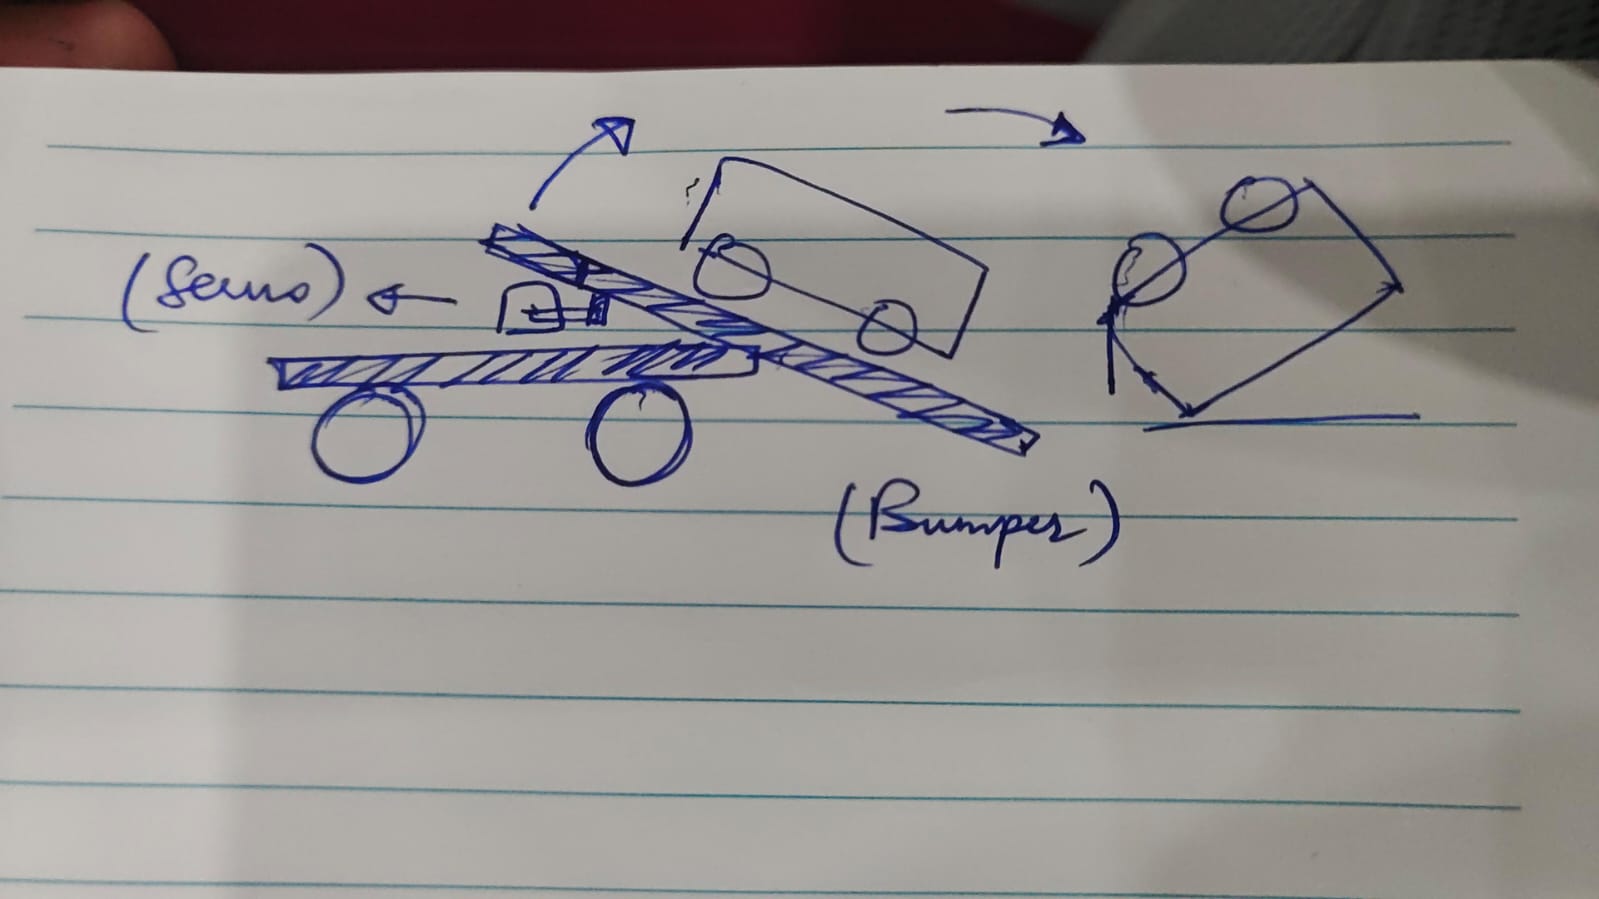 (Servo)
(Bumper)